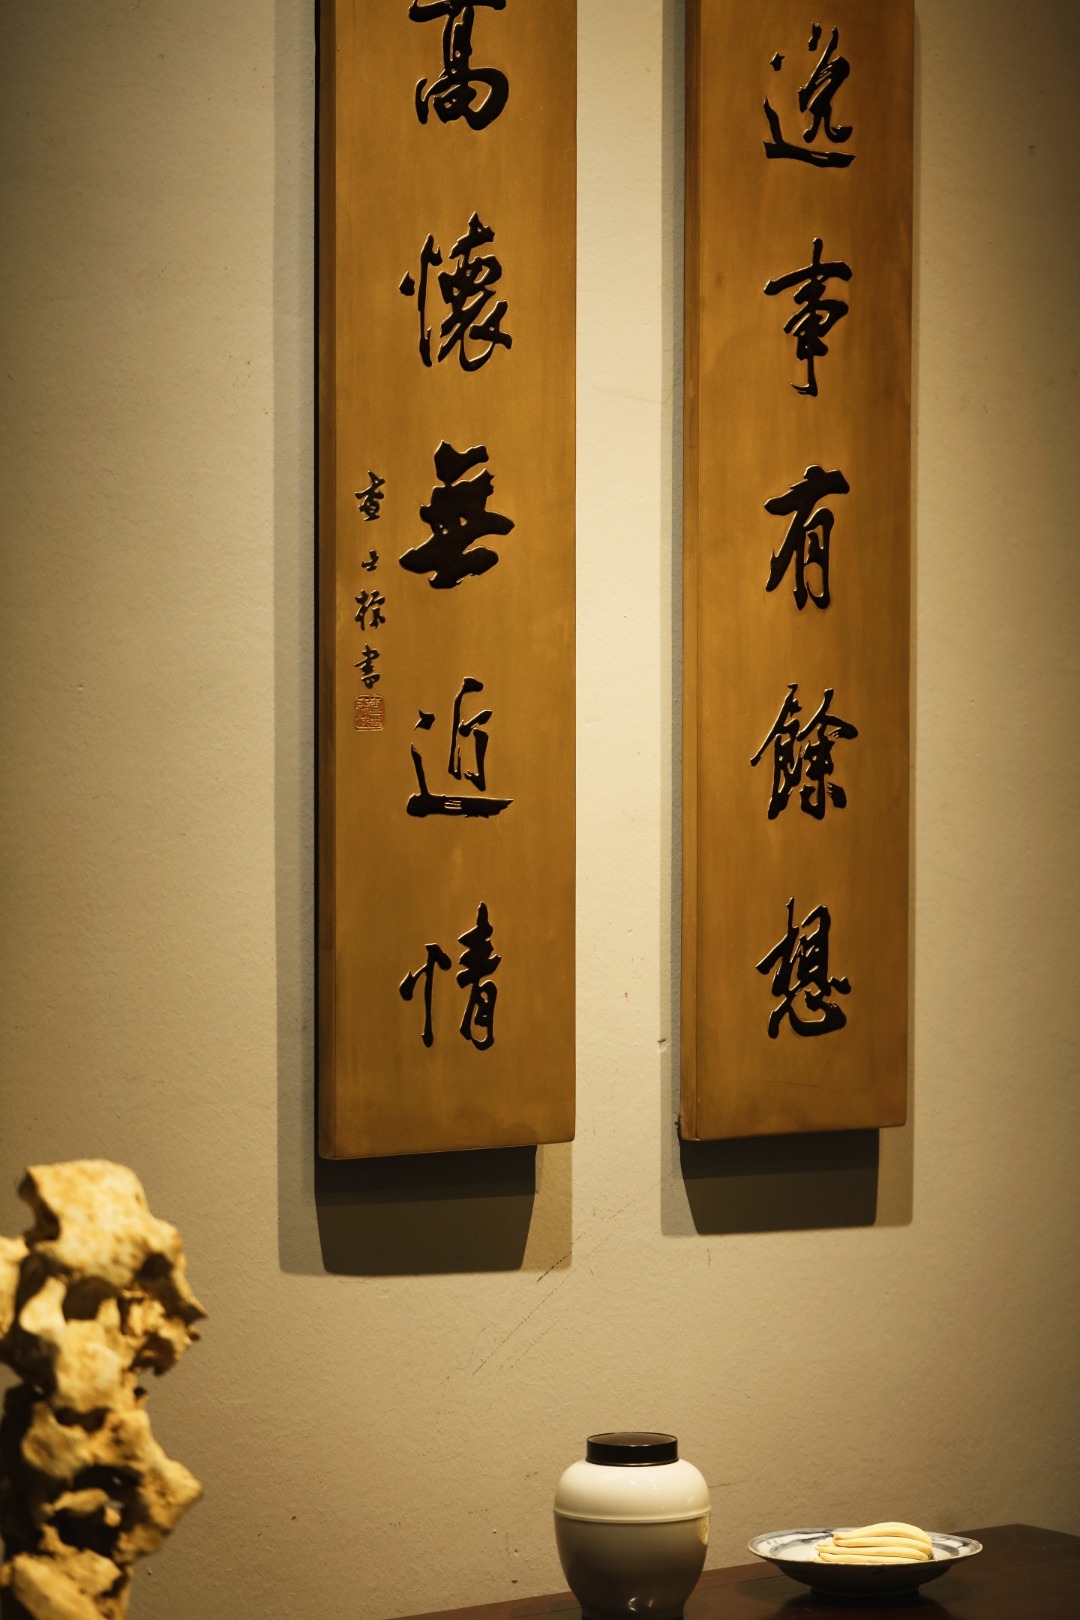 逸事有餘想
高懷無近情
查士标書